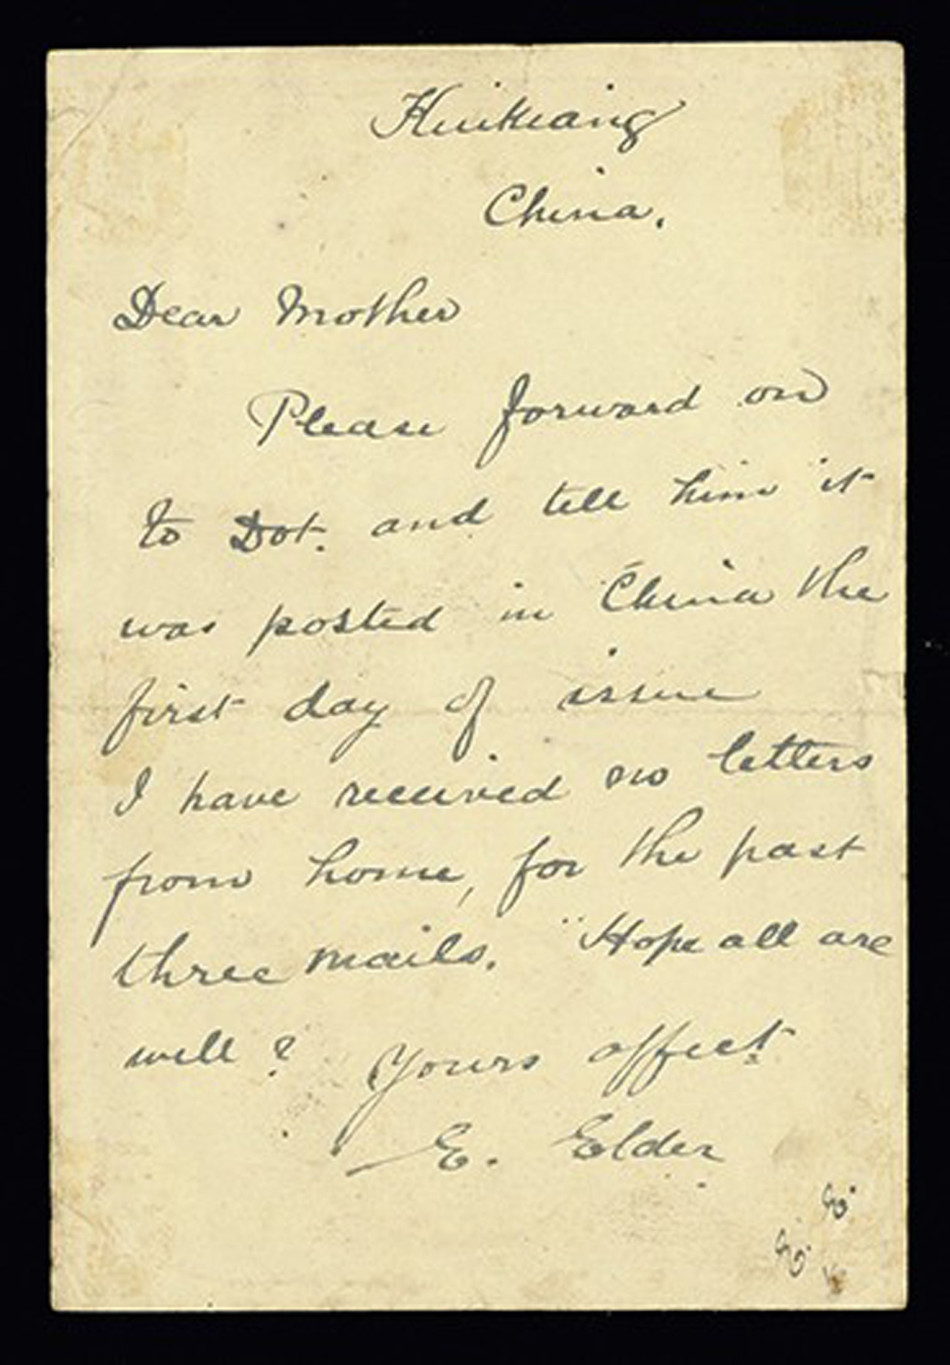 China.
Dear Mother
Please forward on
to Dot. and tell him it
was posted in China the
first day of issue
I have received no letters
from home, for the past
three mails. "Hope all are
well? Yours affect.
E. Elder